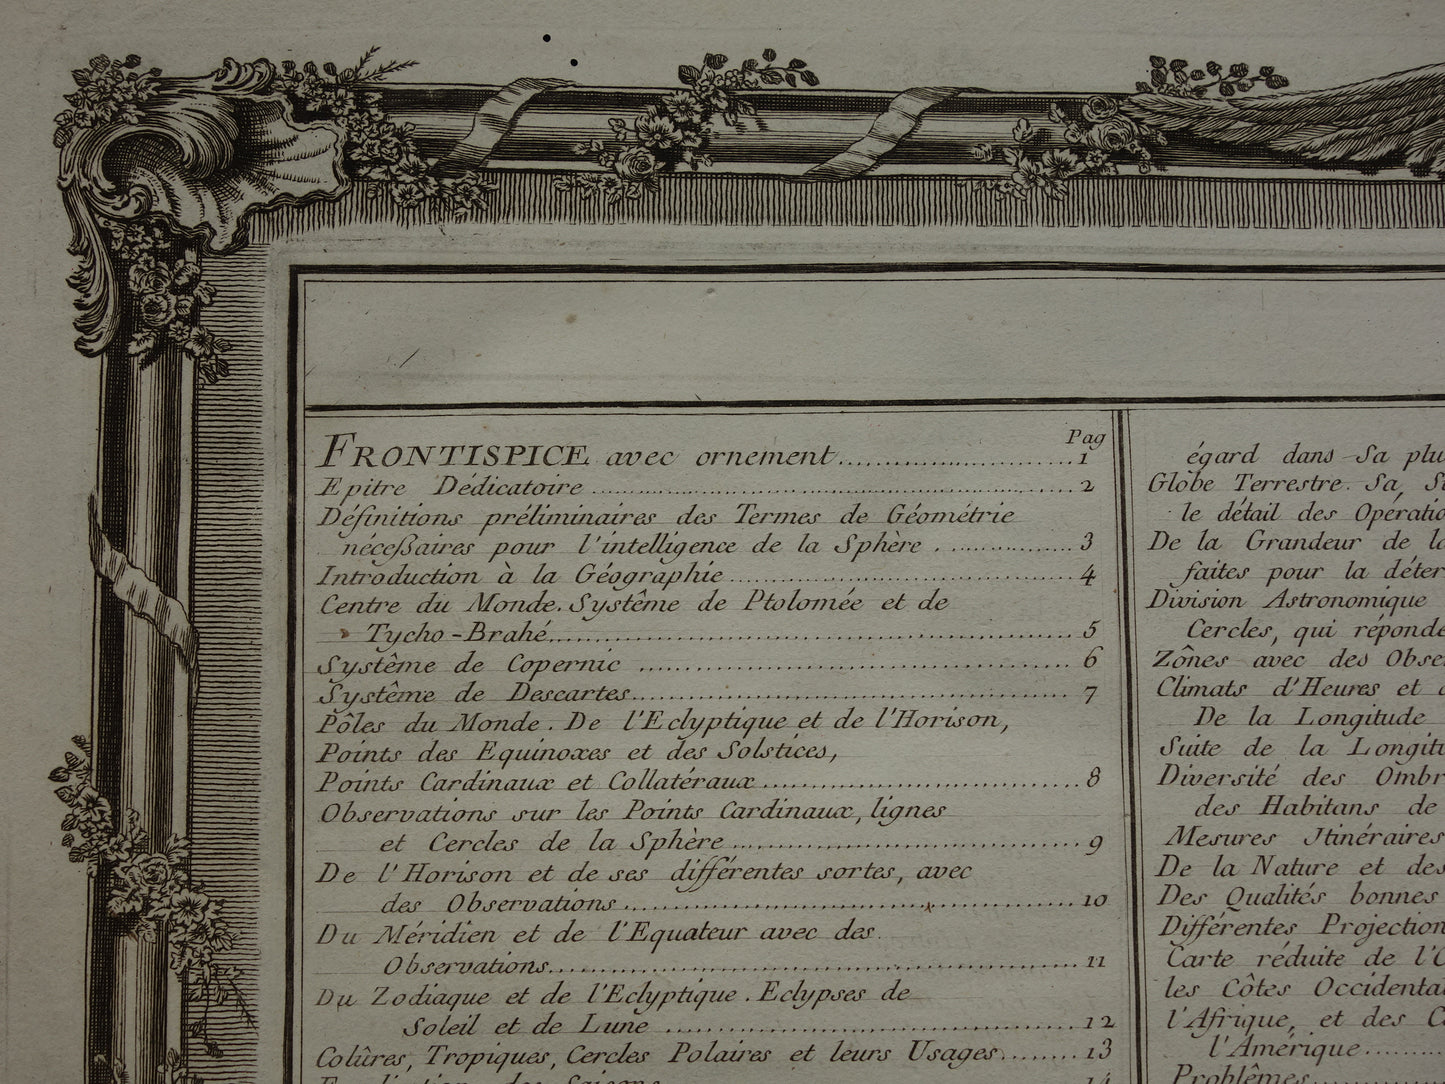 Pag
FRONTISPICE avec ornement..............................1
Epitre Dédicatoire ..............................2
Définitions préliminaires des Termes de Géométrie
néceßaires pour l'intelligence de la Sphère . ..............3
Introduction à la Géographie..............................4
Centre du Monde. Systême de Ptolomée et de
Tycho-Brahé..............................5
Systême de Copernic ..............................6
Systême de Descartes..............................7
Pôles du Monde. De l'Eclyptique et de l'Horison,
Points des Equinoxes et des Solstices,
Points Cardinaux et Collatéraux..............................8
Observations sur les Points Cardinaux, lignes
et Cercles de la Sphère..............................9
De l'Horison et de ses différentes sortes, avec
des Observations..............................10
Du Méridien et de l'Equateur avec des
Observations..............................11
Du Zodiaque et de l'Eclyptique. Eclypses de
Soleil et de Lune ..............................12
Colûres, Tropiques, Cercles Polaires et leurs Usages........13
des Saisons 14
égard dans Sa
Globe Terrestre. Sa,
le détail des
De la Grandeur de
faites pour la
Division Astronomique
Cercles, qui
Zônes avec des
Climats d'Heures et
De la Longitude
Suite de la
Diversité des
des Habitans de
Mesures Itinéraires
De la Nature et des
Des Qualités bonnes
Différentes
Carte réduite de
les Côtes
l'Afrique, et des
l'Amérique..........
Problêmes..........